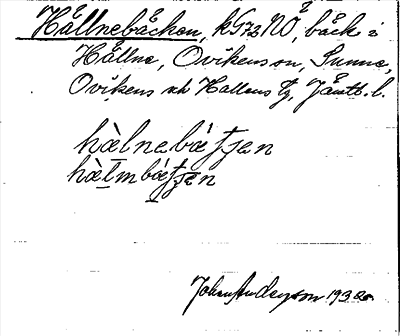 Hållnebäcken, kG72NO, bäck i
Hållne, Ovikens sn, Sunne,
Ovikens och Hallens tg, Jämtl. l.
hàlnebáʄʄen
hàlmbáʄʄen
Johan Anderson 1932